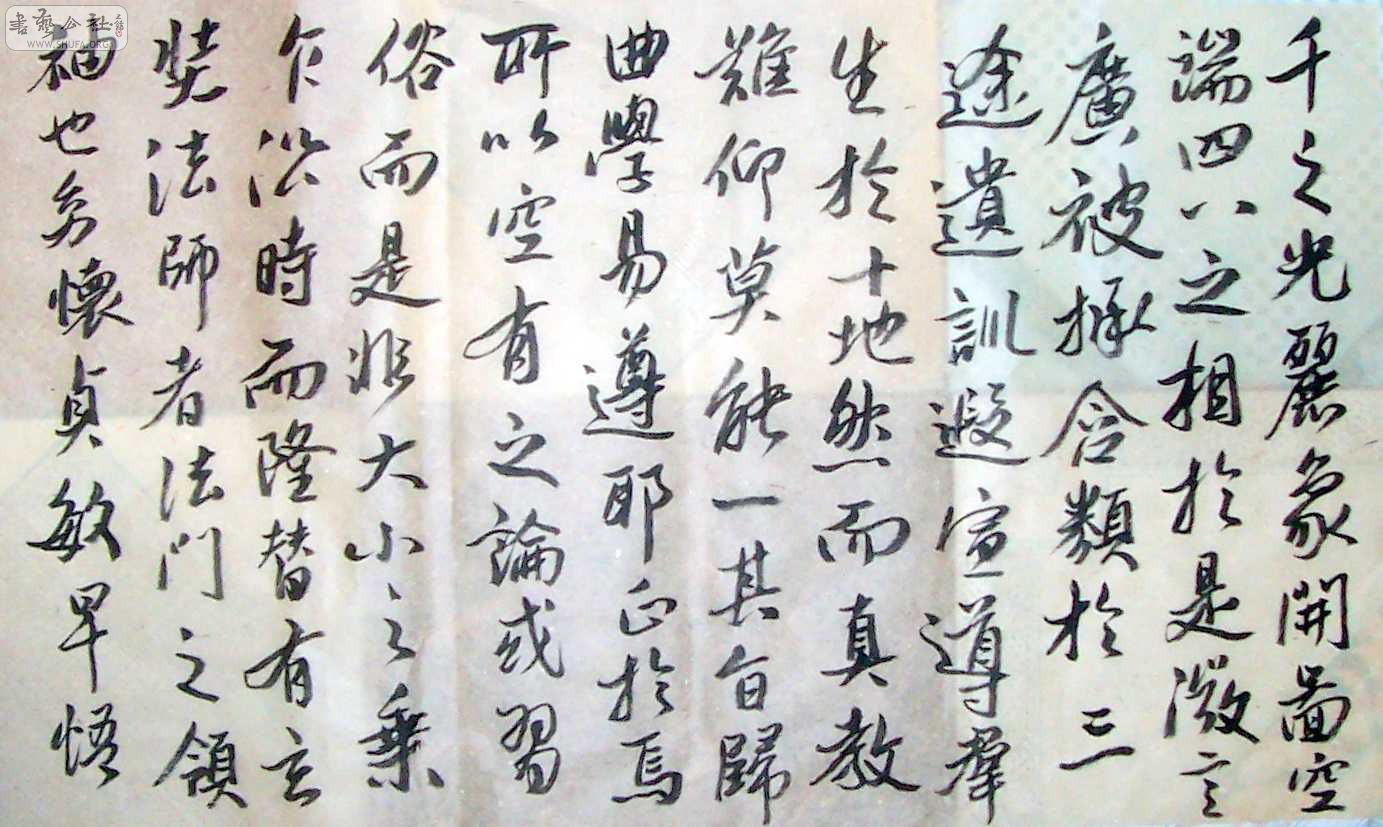 千之光麗象開圖空
端四八之相於是微言
廣被拯含類於三
途遺訓遐宣導羣
生於十地然而真教
難仰莫能一其旨歸
曲學易遵耶正於焉
所以空有之論或習
俗而是非大小之乘
乍沿時而隆替有玄
奘法師者法門之領
袖也幼懷貞敏早悟
書藝公社
WWW.SHUFA.ORG